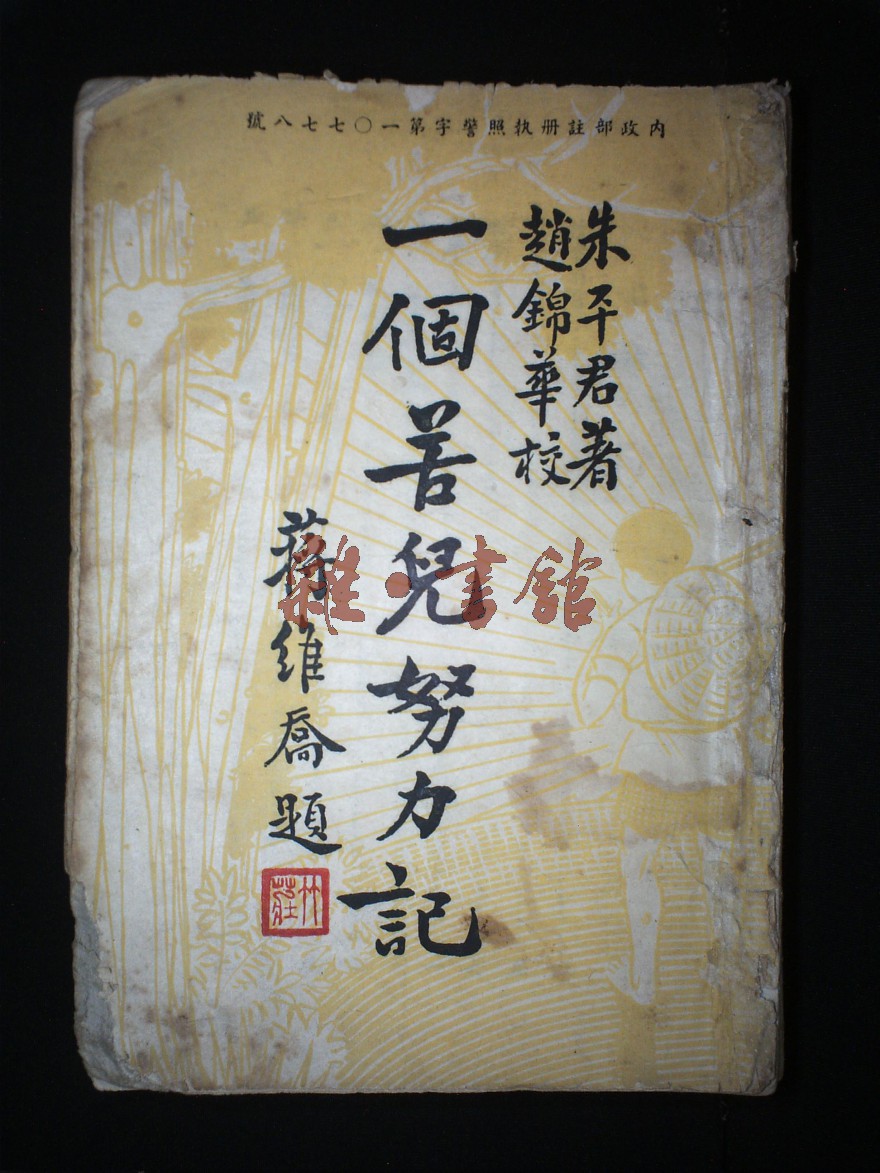 内政部註册执照警字第一〇七七八號
朱平君著
趙錦華校
一個苦兒努力記
蔣維喬題
竹莊
雜·書館